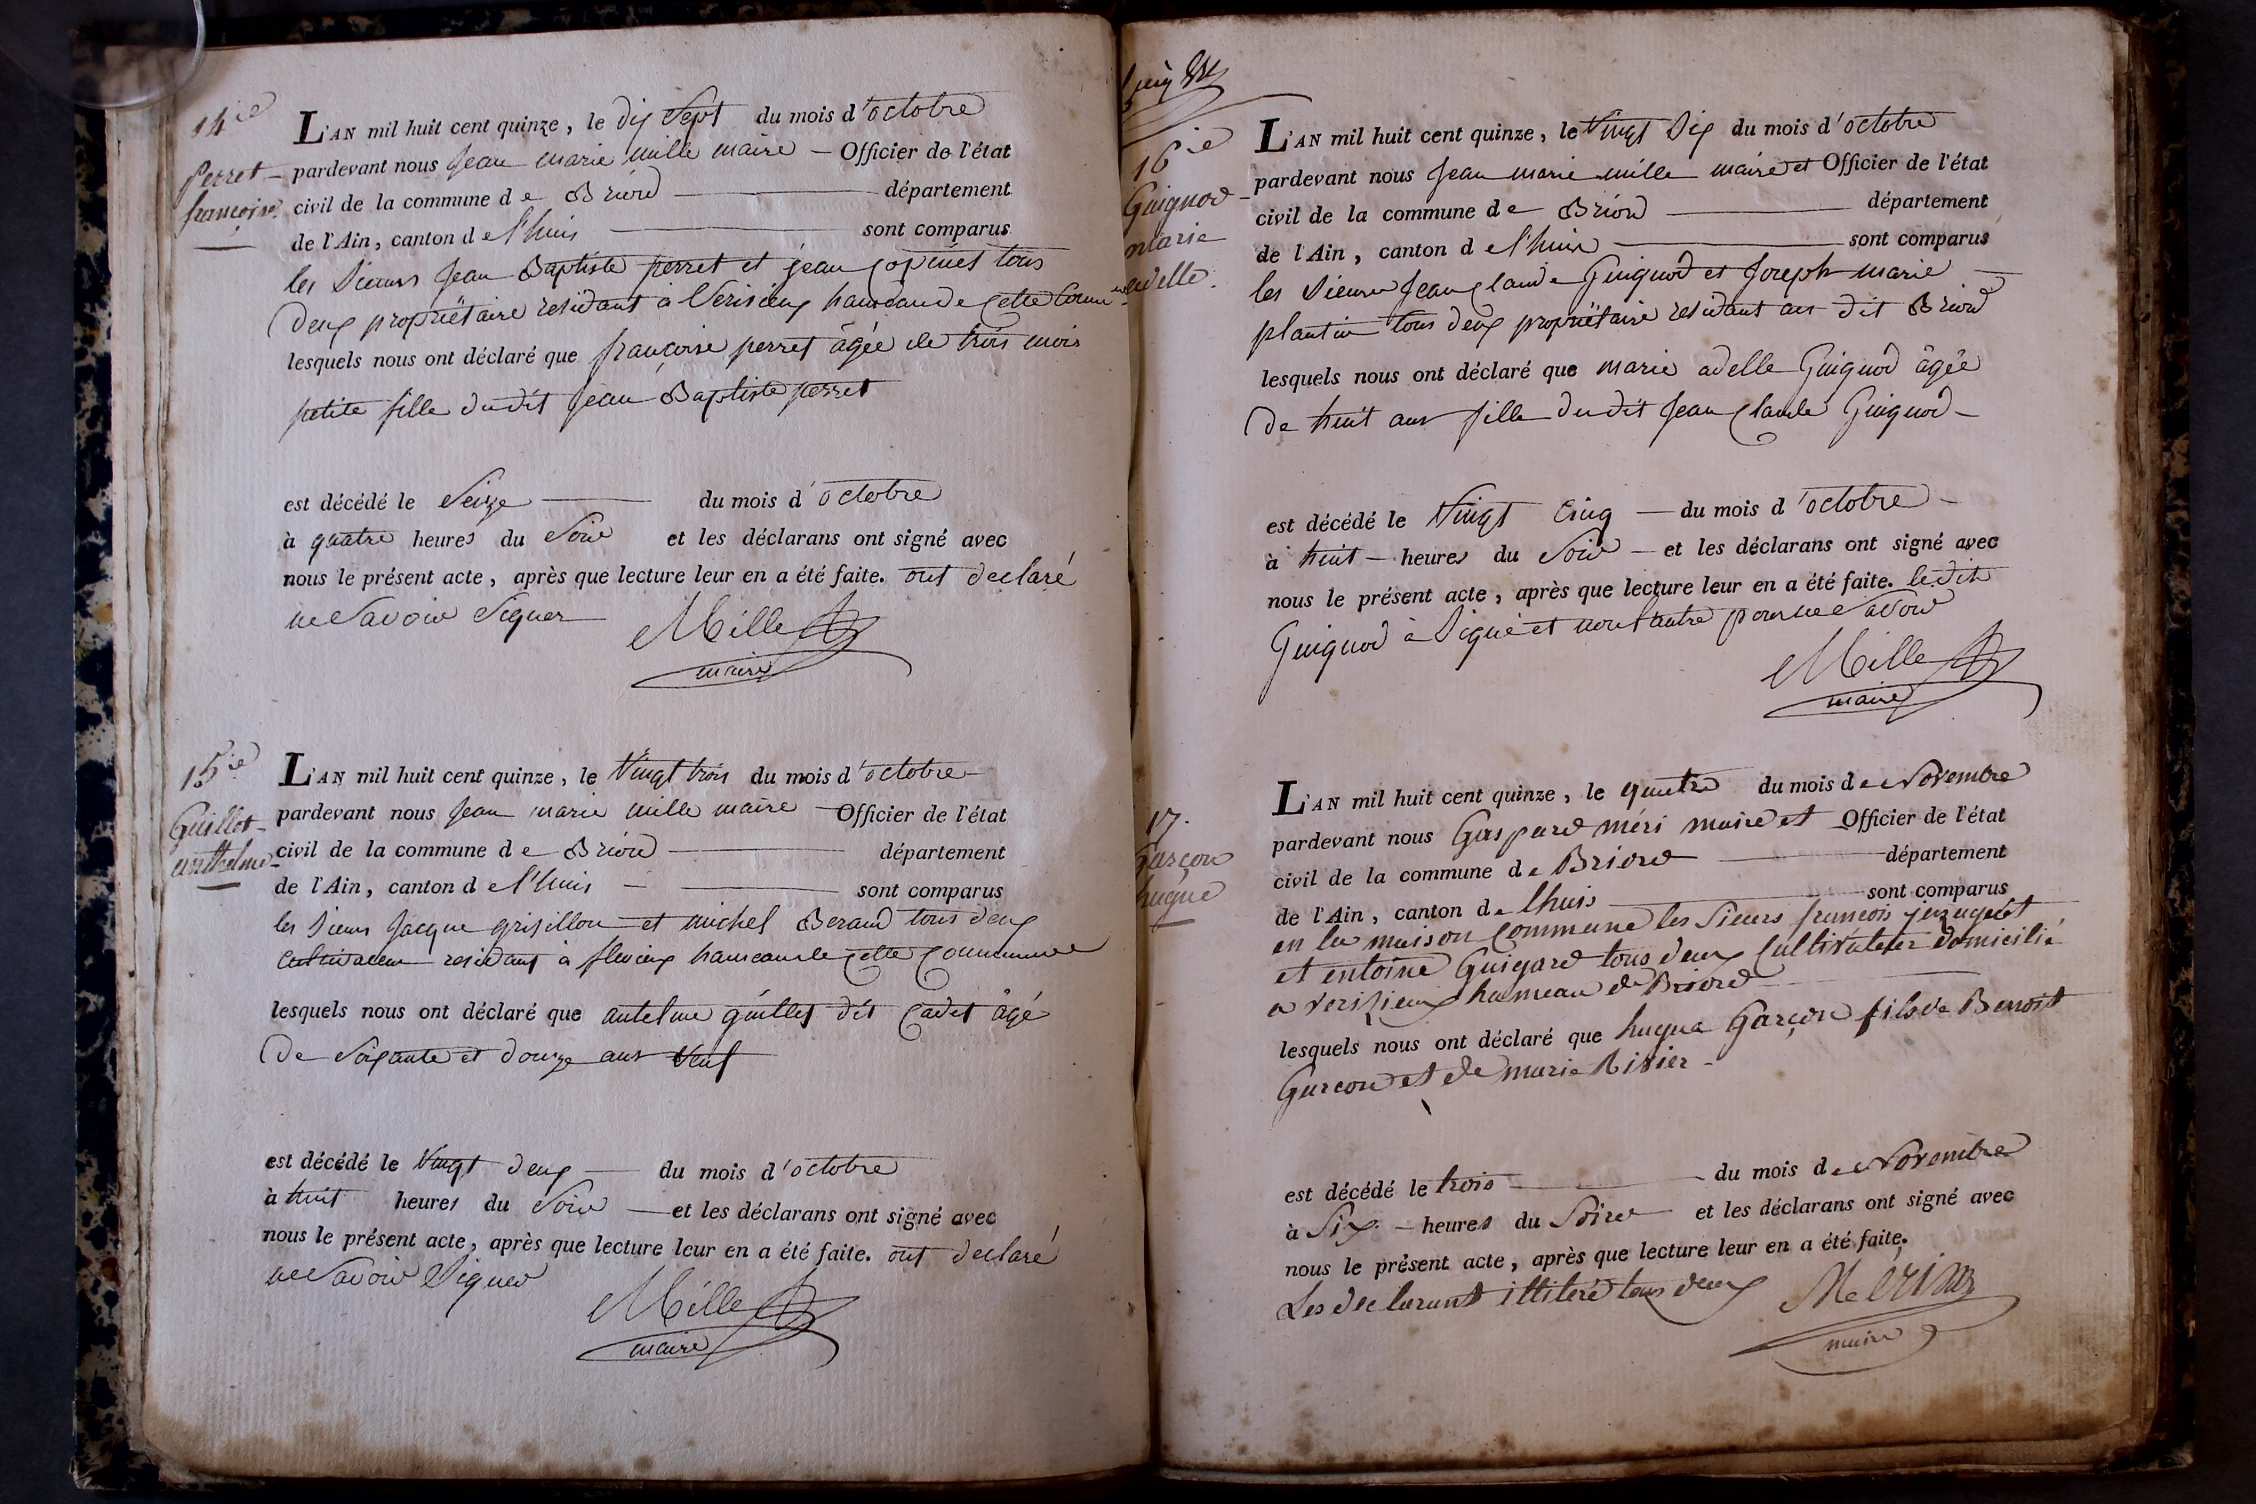 14ie
Perret
françoise
L'AN mil huit cent quinze, le dix Sept du mois d'octobre
pardevant nous Jean marie mille maire — Officier de l'état
civil de la commune de Briord — département
de l'Ain, canton de l'huis — sont comparus
les Sieurs Jean Baptiste perret et jean tous
Deux propriëtaire residant à Verisieux hameau de Cette Comm
lesquels nous ont déclaré que françoise perret âgée de trois mois
petite fille dudit Jean Baptiste perret
est décédé le Seize — du mois d'octobre
à quatre heures du Soir et les déclarans ont signé avec
nous le présent acte, après que lecture leur en a été faite. ont declaré
ne Savoir Signer
Mille
maire
15ie
Guillot
anthelme
L'AN mil huit cent quinze, le Vingt trois du mois d'octobre
pardevant nous Jean marie mille maire — Officier de l'état
civil de la commune de Briord — département
de l'Ain, canton de l'huis — sont comparus
les Sieurs Jacque grisillon et michel Beraud tous deux
Cultivateur residant à flevieux hameau de Cette Commune
lesquels nous ont déclaré que antelme guillet dit Cadet âgé
De Soixante et douze ans Veuf
est décédé le Vingt deux — du mois d'octobre
à huit heures du Soir — et les déclarans ont signé avec
nous le présent acte, après que lecture leur en a été faite. ont declaré
ne Savoir Signer
Mille
maire
16ie
Guignod
marie
adelle.
L'AN mil huit cent quinze, le Vingt Six du mois d'octobre
pardevant nous Jean marie mille maire et Officier de l'état
civil de la commune de Briord — département
de l'Ain, canton de l'huis — sont comparus
les Sieurs Jean Claude Guignod et Joseph marie
plantin tous deux propriëtaire residant au dit Briord
lesquels nous ont déclaré que marie adelle Guignod âgée
De huit ans fille du dit Jean Claude Guignod —
est décédé le Vingt Cinq — du mois d'octobre —
à huit — heures du Soir — et les déclarans ont signé avec
nous le présent acte, après que lecture leur en a été faite. le dit
Guignod à Signé et non l'autre pour ne Savoir
Mille
maire
17.
Garçon
hugue
L'AN mil huit cent quinze, le quatre du mois de Novembre
pardevant nous Gaspard méri maire et Officier de l'état
civil de la commune de Briord — département
de l'Ain, canton de lhuis — sont comparus
en la maison Commune les Sieurs francois
et entoine Guigard tous deux Cultivateur domicilié
a verizieux hameau de Briord
lesquels nous ont déclaré que hugue Garçon fils de Benoit
Garcon et de marie Rivier —
est décédé le trois — du mois de Novembre
à Six — heures du Soire et les déclarans ont signé avec
nous le présent acte, après que lecture leur en a été faite.
Les declarant illiteré tous deux
maire